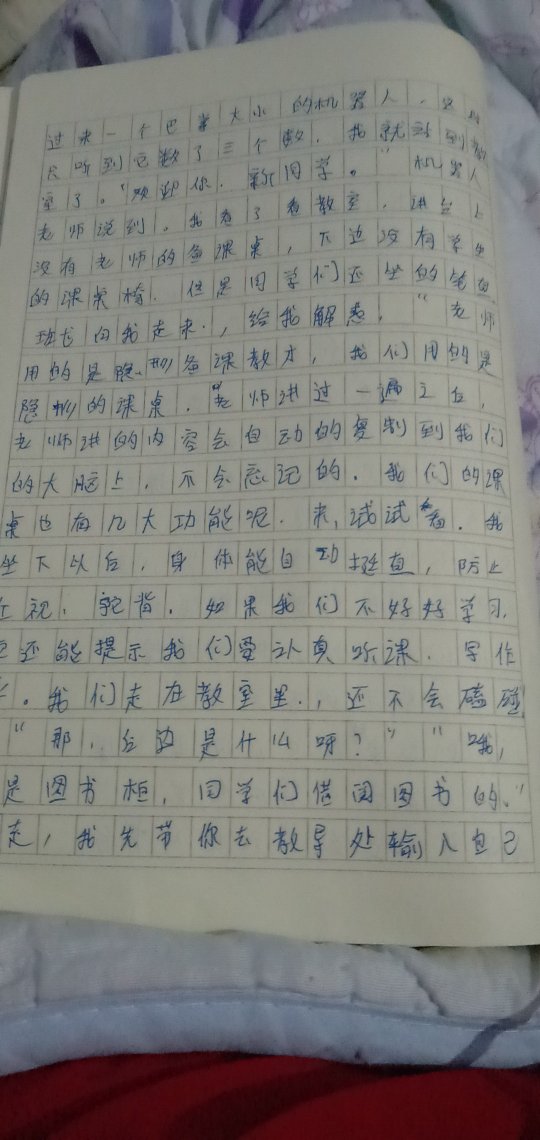 过来一个巴掌大小的机器人，只
只听到它数了三个数，我就到教
室了。“欢迎你，新同学。”机器人
老师说到。我看了看教室，讲台上
没有老师的备课桌，下边没有学生
的课桌椅，但是同学们还坐的笔直
班长向我走来，给我解惑，“老师
用的是隐形备课教才，我们用的是
隐形的课桌，老师讲过一遍之后，
老师讲的内容会自动的复制到我们
的大脑上，不会忘记的。我们的课
桌也有几大功能呢．来，试试看．我
坐下以后，身体能自动挺直，防止
近视、驼背．如果我们不好好学习，
还能提示我们要认真听课、写作
。我们走在教室里，还不会磕碰
“那，后边是什么呀？”“哦，
是图书柜，同学们借阅图书的。”
走，我先带你去教导处输入自己